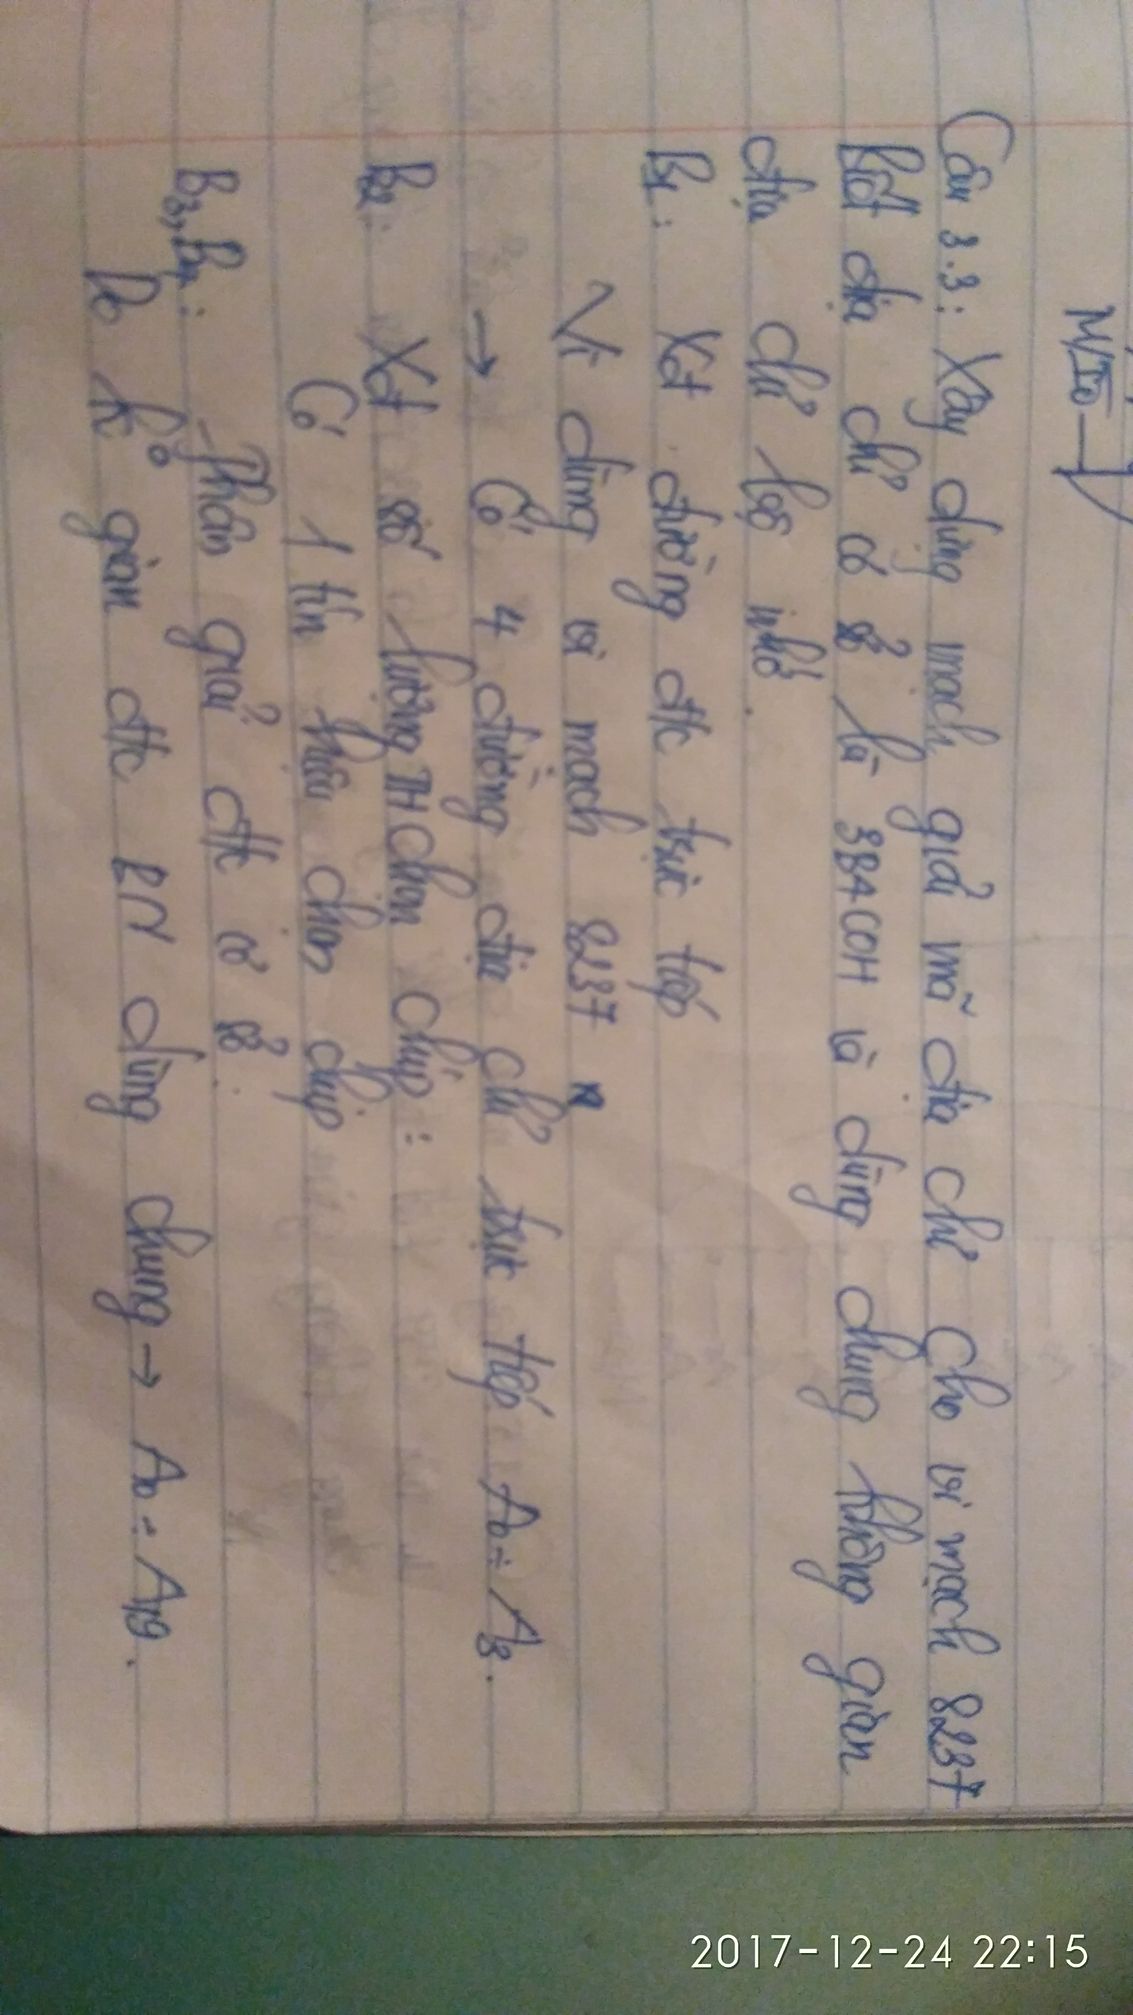 M/IO
Câu 3.3: Xây dựng mạch giải mã địa chỉ cho vi mạch 8237
Biết địa chỉ cơ sở là 3BAC0H và dùng chung không gian
địa chỉ bộ nhớ.
B1: Xđ đường đ/c trực tiếp
Vì dùng vi mạch 8237
→ Có 4 đường địa chỉ trực tiếp A0 ÷ A3.
B2: Xđ số lượng TH chọn chíp:
Có 1 tín hiệu chọn chíp
B3, B4: Phân giải đ/c cơ sở:
Do ko gian đ/c BN dùng chung → A0 ÷ A19.
2017-12-24 22:15